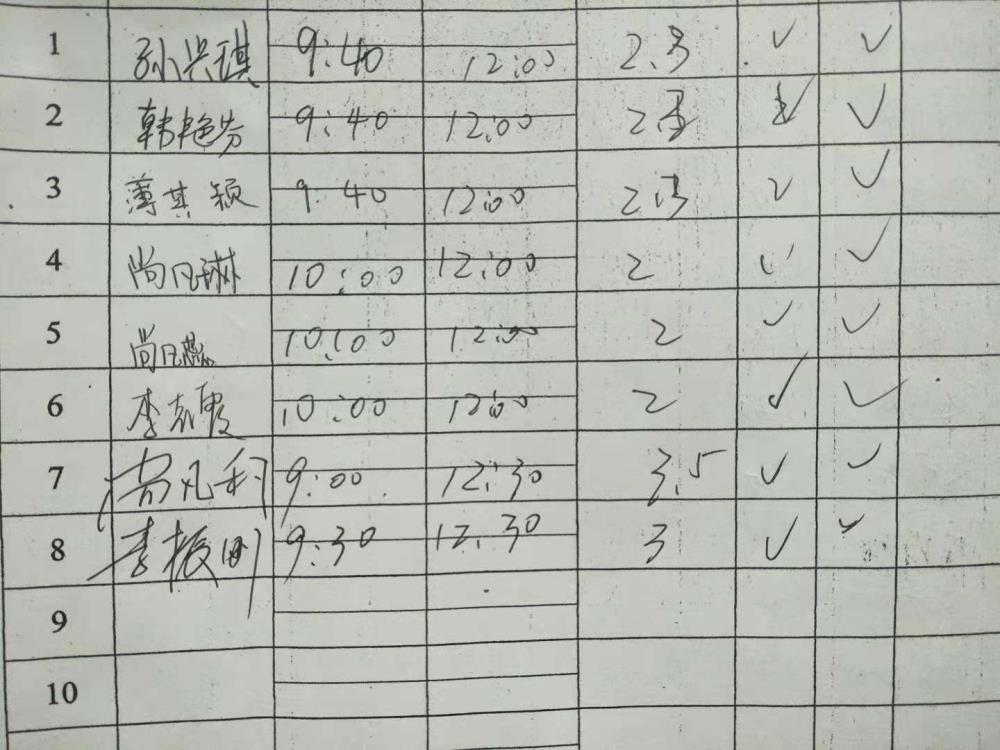 1 孙兴琪 9:40 12:00 2.3 ✓ ✓
2 韩艳芬 9:40 12:00 ✓ ✓
3 薄其颖 9:40 12:00 2.3 ✓ ✓
4 尚凡琳 10:00 12:00 2 ✓ ✓
5 尚凡 10:00 12:00 2 ✓ ✓
6 李 10:00 12:00 2 ✓ ✓
7 尚凡利 9:00 12:30 3.5 ✓ ✓
8 李振明 9:30 12:30 3 ✓ ✓
9
10